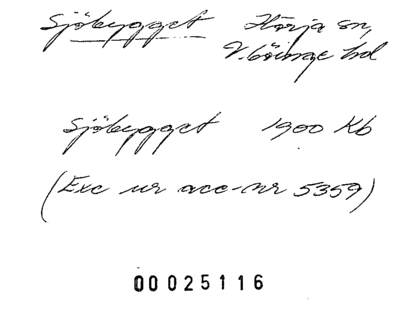 Sjöbygget Hörja sn,
V. Göinge hd
Sjöbygget 1900 Kb
(Exc ur acc-nr 5359)
00025116